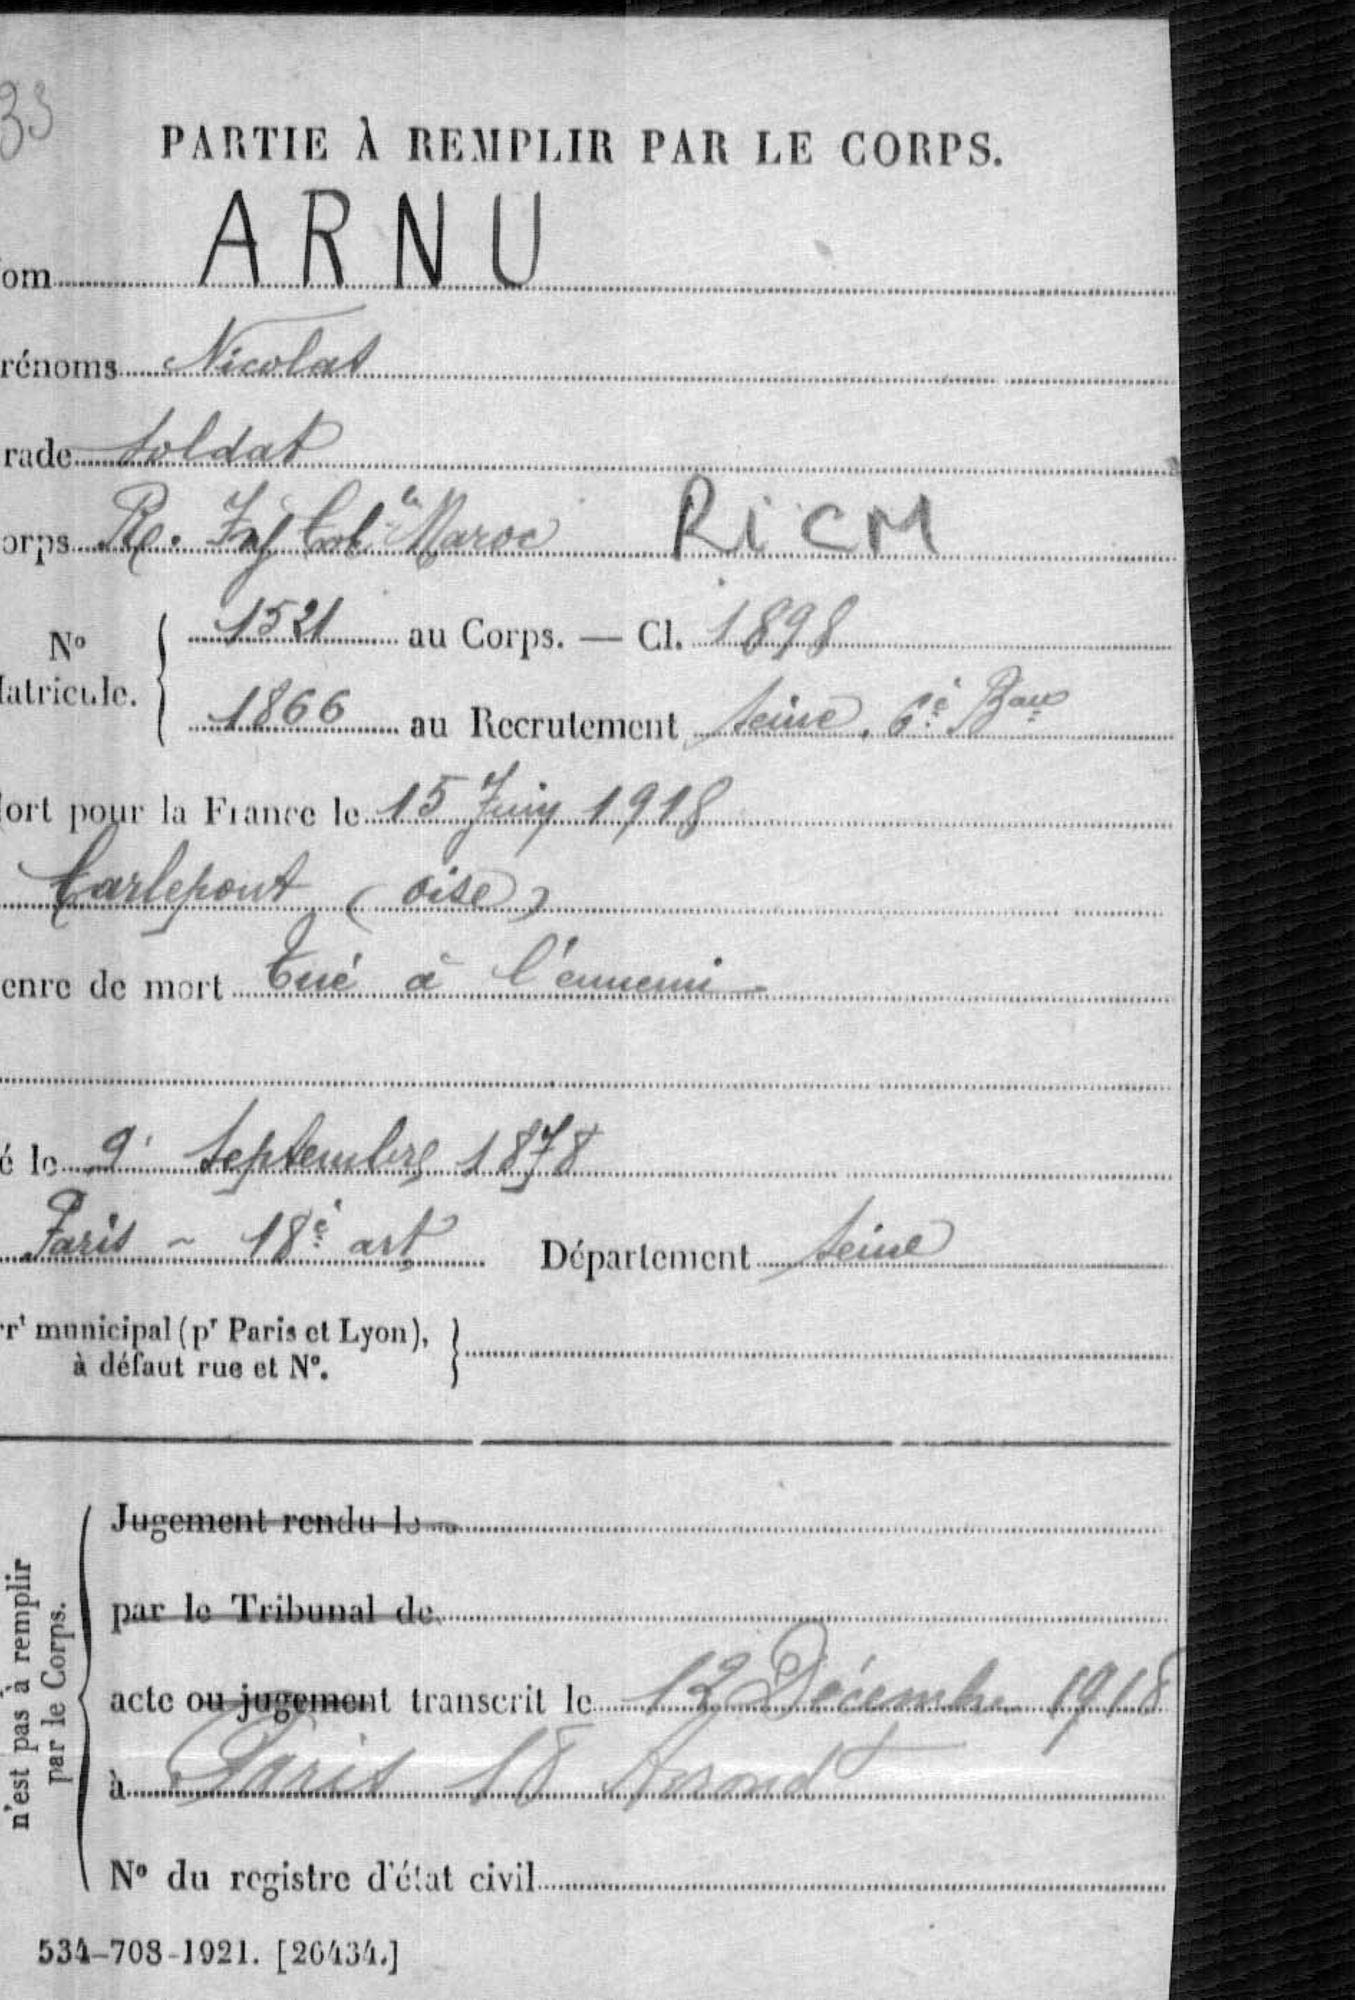 33
PARTIE À REMPLIR PAR LE CORPS.
om ARNU
rénoms Nicolas
rade Soldat
orps Rt. Inf Col le Maroc RICM
No 1521 au Corps. — Cl. 1898
Matricule. 1866 au Recrutement Seine. 6e Bau
ort pour la France le 15 Juin 1918
Carlepont (oise)
enre de mort Tué à l'ennemi
é le 9 Septembre 1878
Paris - 18e art Département Seine
rrt municipal (pr Paris et Lyon),
à défaut rue et No.
n'est pas à remplir
par le Corps.
Jugement rendu le
par le Tribunal de
acte ou jugement transcrit le 12 Décembre 1918
à Paris 18 Arrondt
No du registre d'état civil
534-708-1921. [26434.]